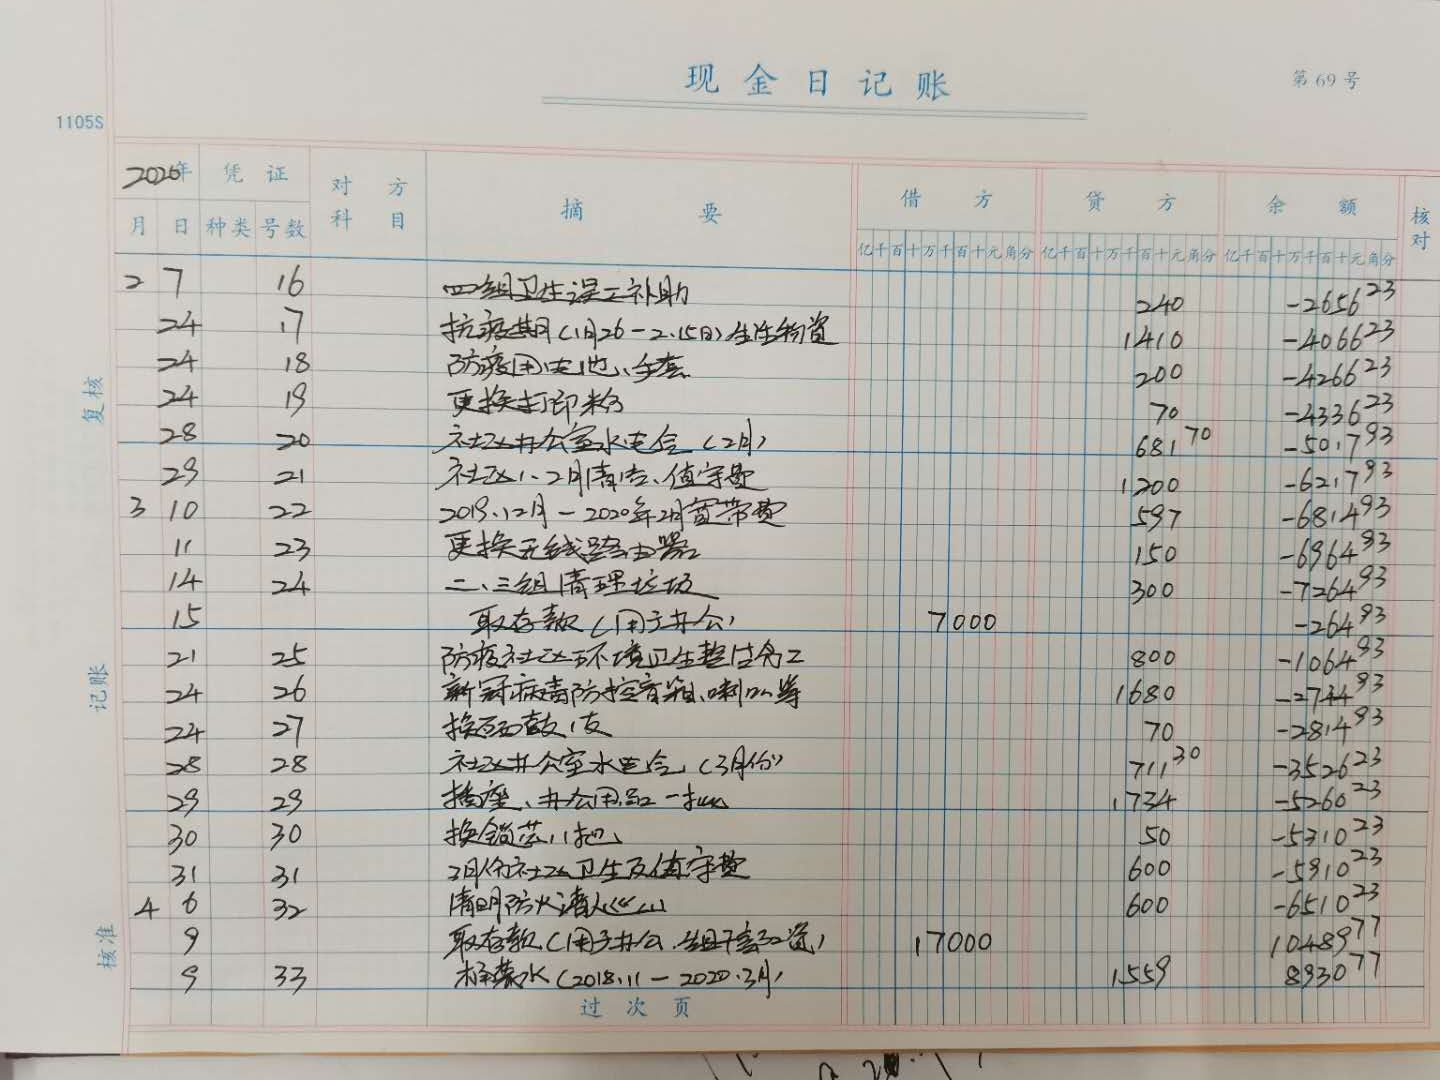 现金日记账
第69号
1105S
2020年 凭证 对方科目 摘要 借方 贷方 余额 核对
月 日 种类 号数 亿千百十万千百十元角分 亿千百十万千百十元角分 亿千百十万千百十元角分
2 7 16 四组卫生误工补助 240 -2656 23
24 17 抗疫期(1月26-2.15日)生活物资 1410 -4066 23
24 18 防疫用电池、手套 200 -4266 23
24 19 更换打印粉 70 -4336 23
28 20 社区办公室水电气(2月) 681 70 -5017 93
29 21 社区1、2月清洁、值守费 1200 -6217 93
3 10 22 2019.12月-2020年2月宽带费 597 -6814 93
11 23 更换无线路由器 150 -6964 93
14 24 二、三组清理垃圾 300 -7264 93
15 取存款(用于办公) 7000 -264 93
21 25 防疫社区环境卫生整治务工 800 -1064 93
24 26 新冠病毒防控音箱、喇叭等 1680 -2744 93
24 27 换面鼓1支 70 -2814 93
28 28 社区办公室水电气(3月份) 711 30 -3526 23
29 29 插座、办公用品一批 1734 -5260 23
30 30 换锁芯1把 50 -5310 23
31 31 2月份社区卫生及值守费 600 -5910 23
4 6 32 清明防火请人巡山 600 -6510 23
9 取存款(用于办公、组干部工资) 17000 10489 77
9 33 桶装水(2018.11-2020.3月) 1559 8930 77
过次页
复核
记账
核准